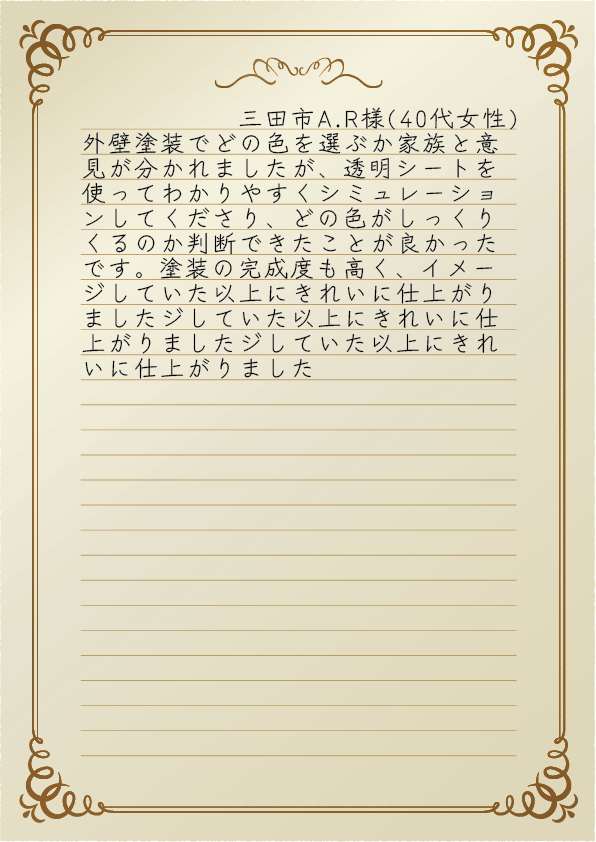 三田市A.R様(40代女性)
外壁塗装でどの色を選ぶか家族と意
見が分かれましたが、透明シートを
使ってわかりやすくシミュレーショ
ンしてくださり、どの色がしっくり
くるのか判断できたことが良かった
です。塗装の完成度も高く、イメー
ジしていた以上にきれいに仕上がり
ましたジしていた以上にきれいに仕
上がりましたジしていた以上にきれ
いに仕上がりました